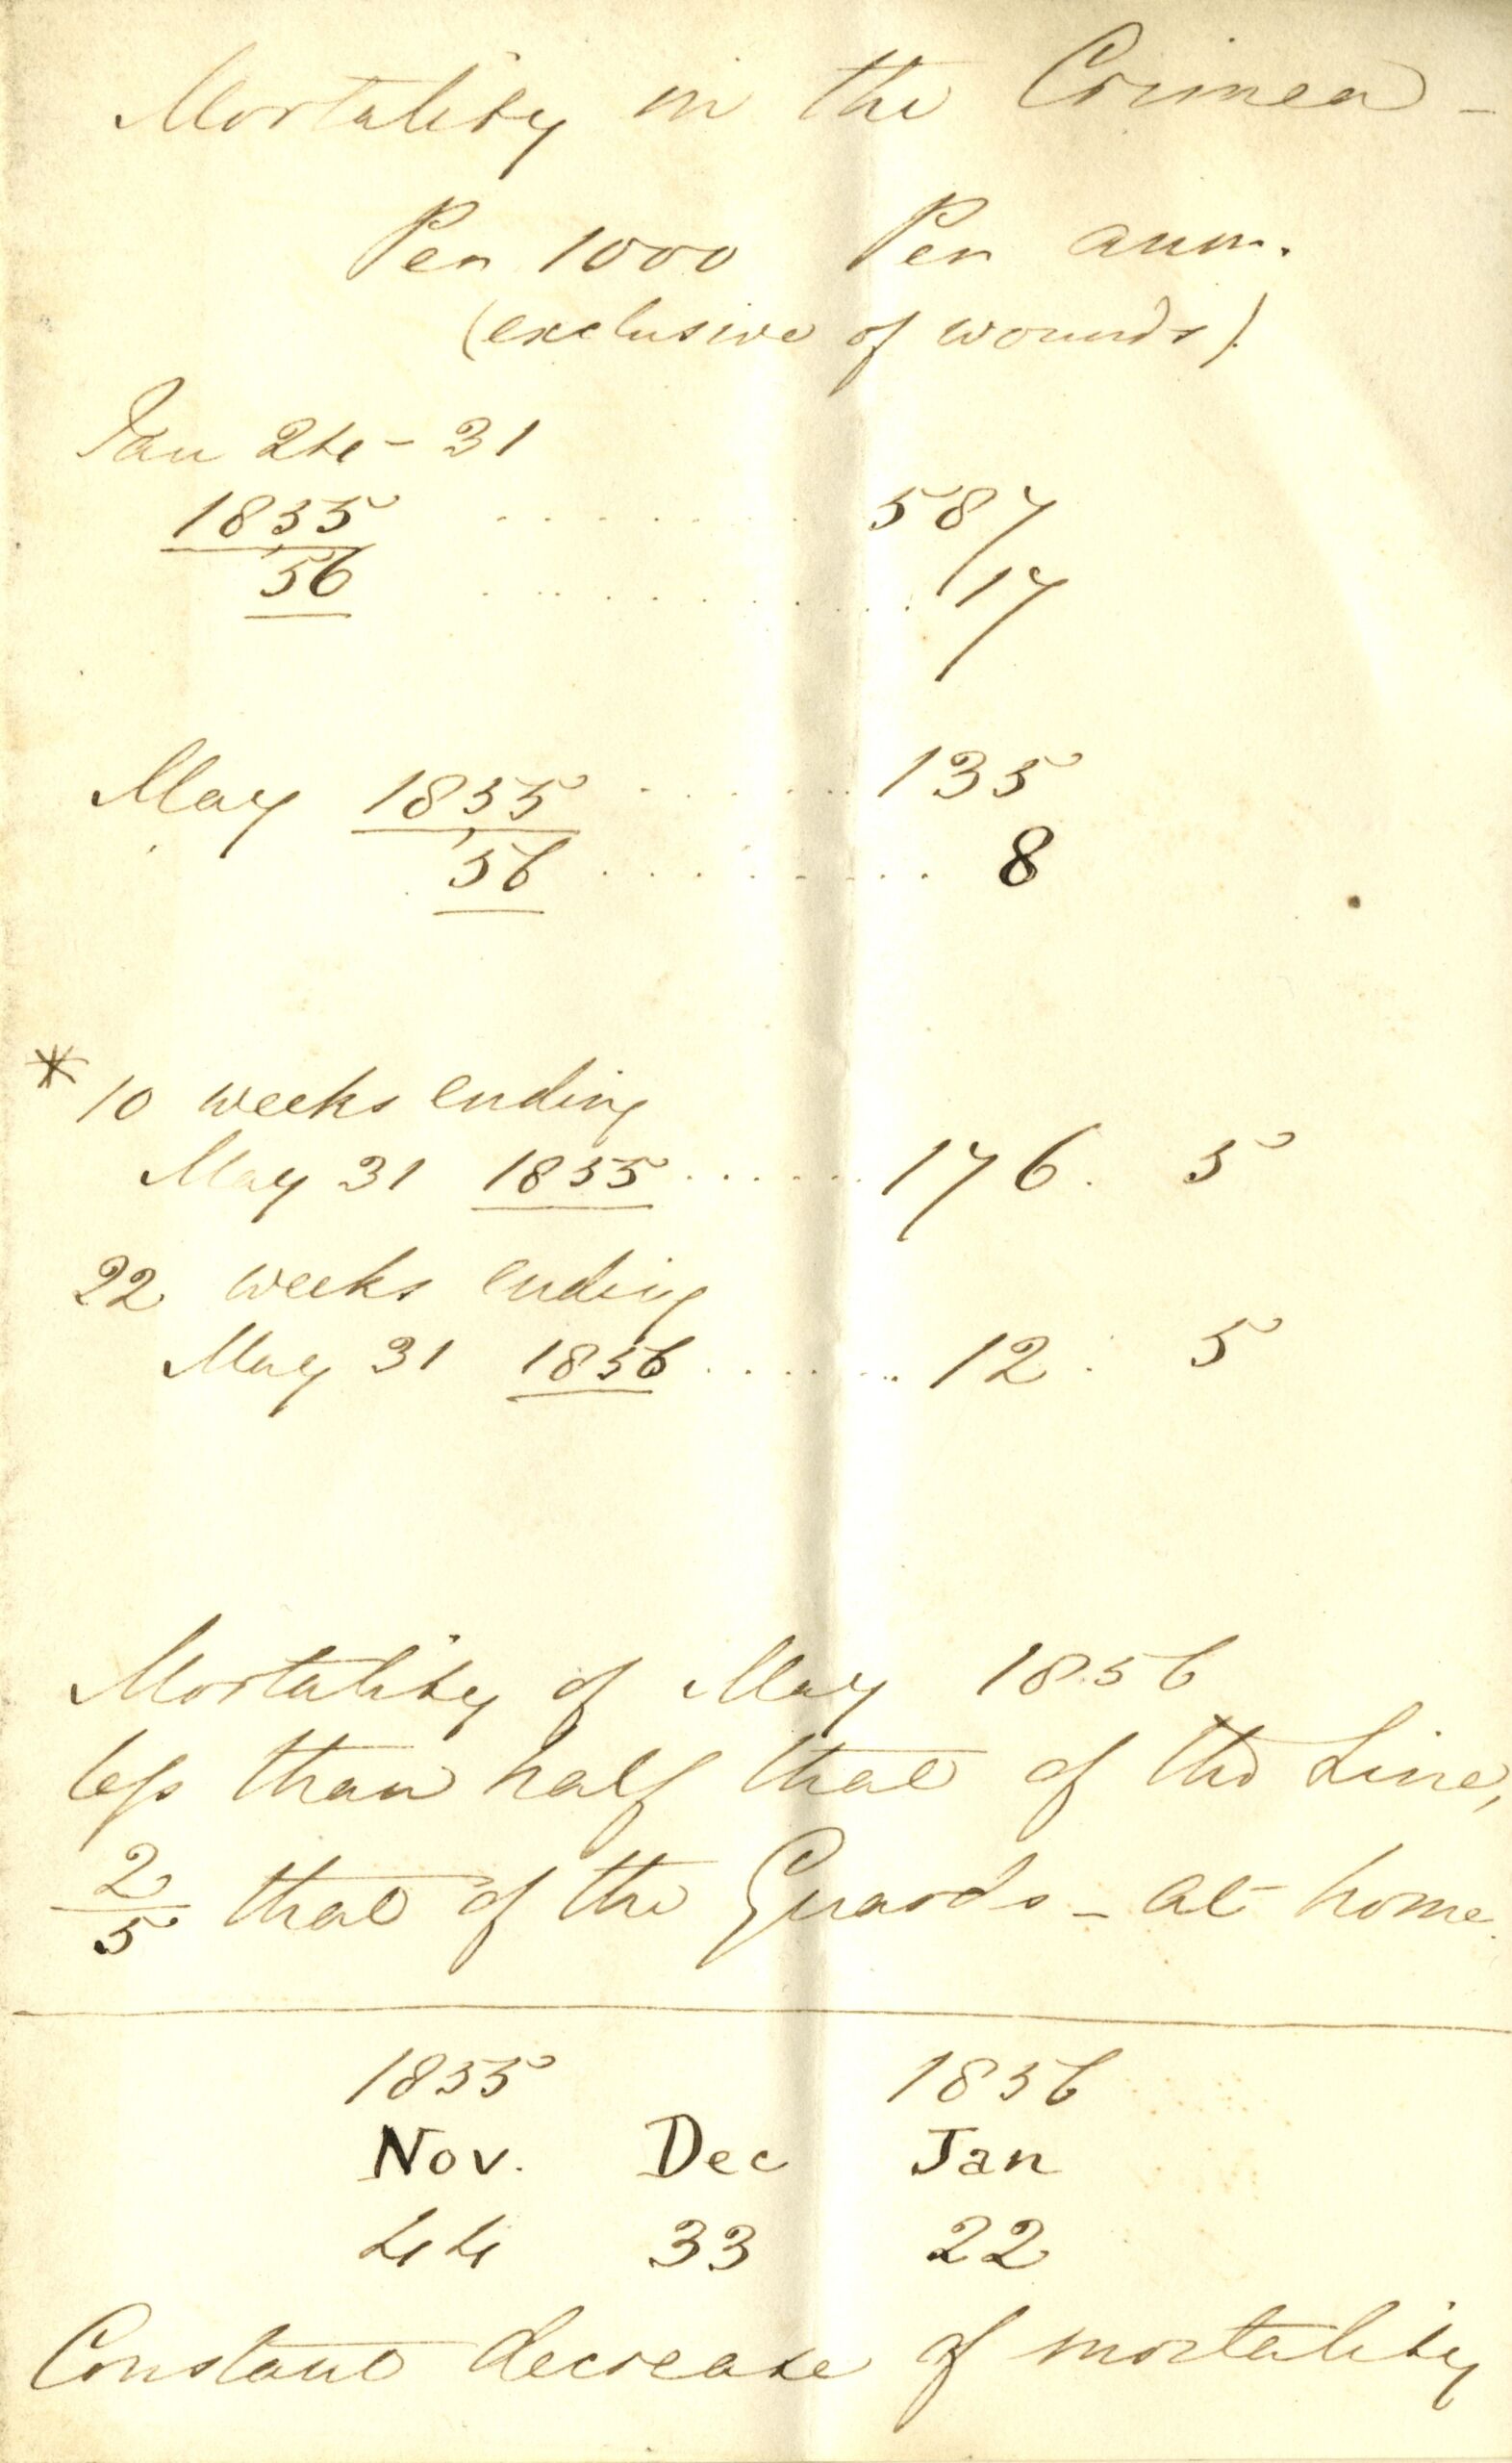 Mortality in the Crimea -
Per 1000 Per ann.
(exclusive of wounds).
Jan 24 - 31
1855 . . . . . . . . 587
56 . . . . . . . . . . . 17
May 1855 . . . . . . . 135
56 . . . . . . . . . 8
* 10 weeks ending
May 31 1855 . . . . . . 176. 5
22 weeks ending
May 31 1856 . . . . . . 12. 5
Mortality of May 1856
less than half that of the Line,
2/5 that of the Guards - at home.
1855 1856
Nov. Dec Jan
44 33 22
Constant decrease of mortality